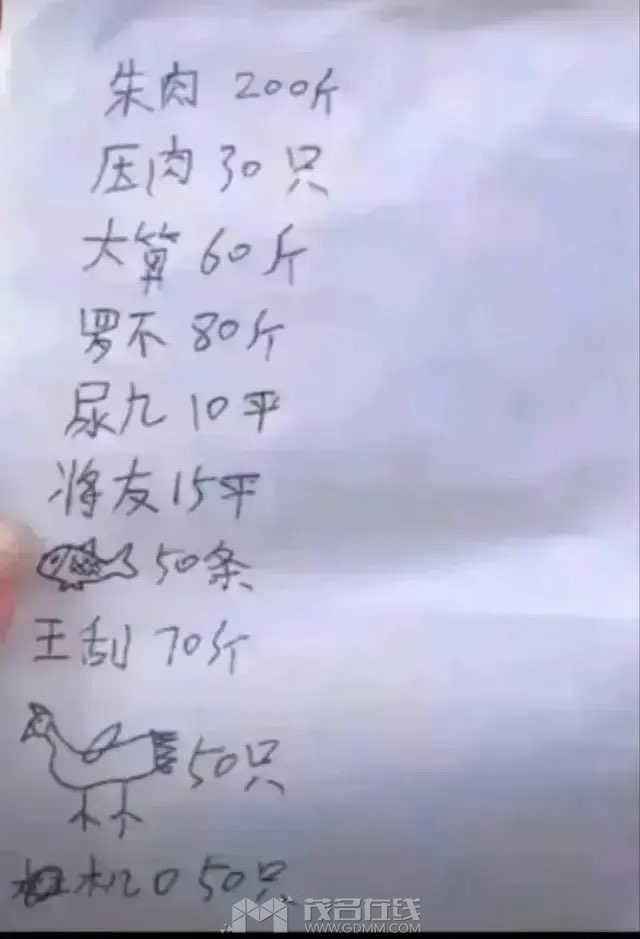 朱肉 200斤
压肉 30只
大算 60斤
罗不 80斤
尿九 10平
将友 15平
50条
王刮 70斤
50只
机口 50只
茂名在线
WWW.GDMM.COM